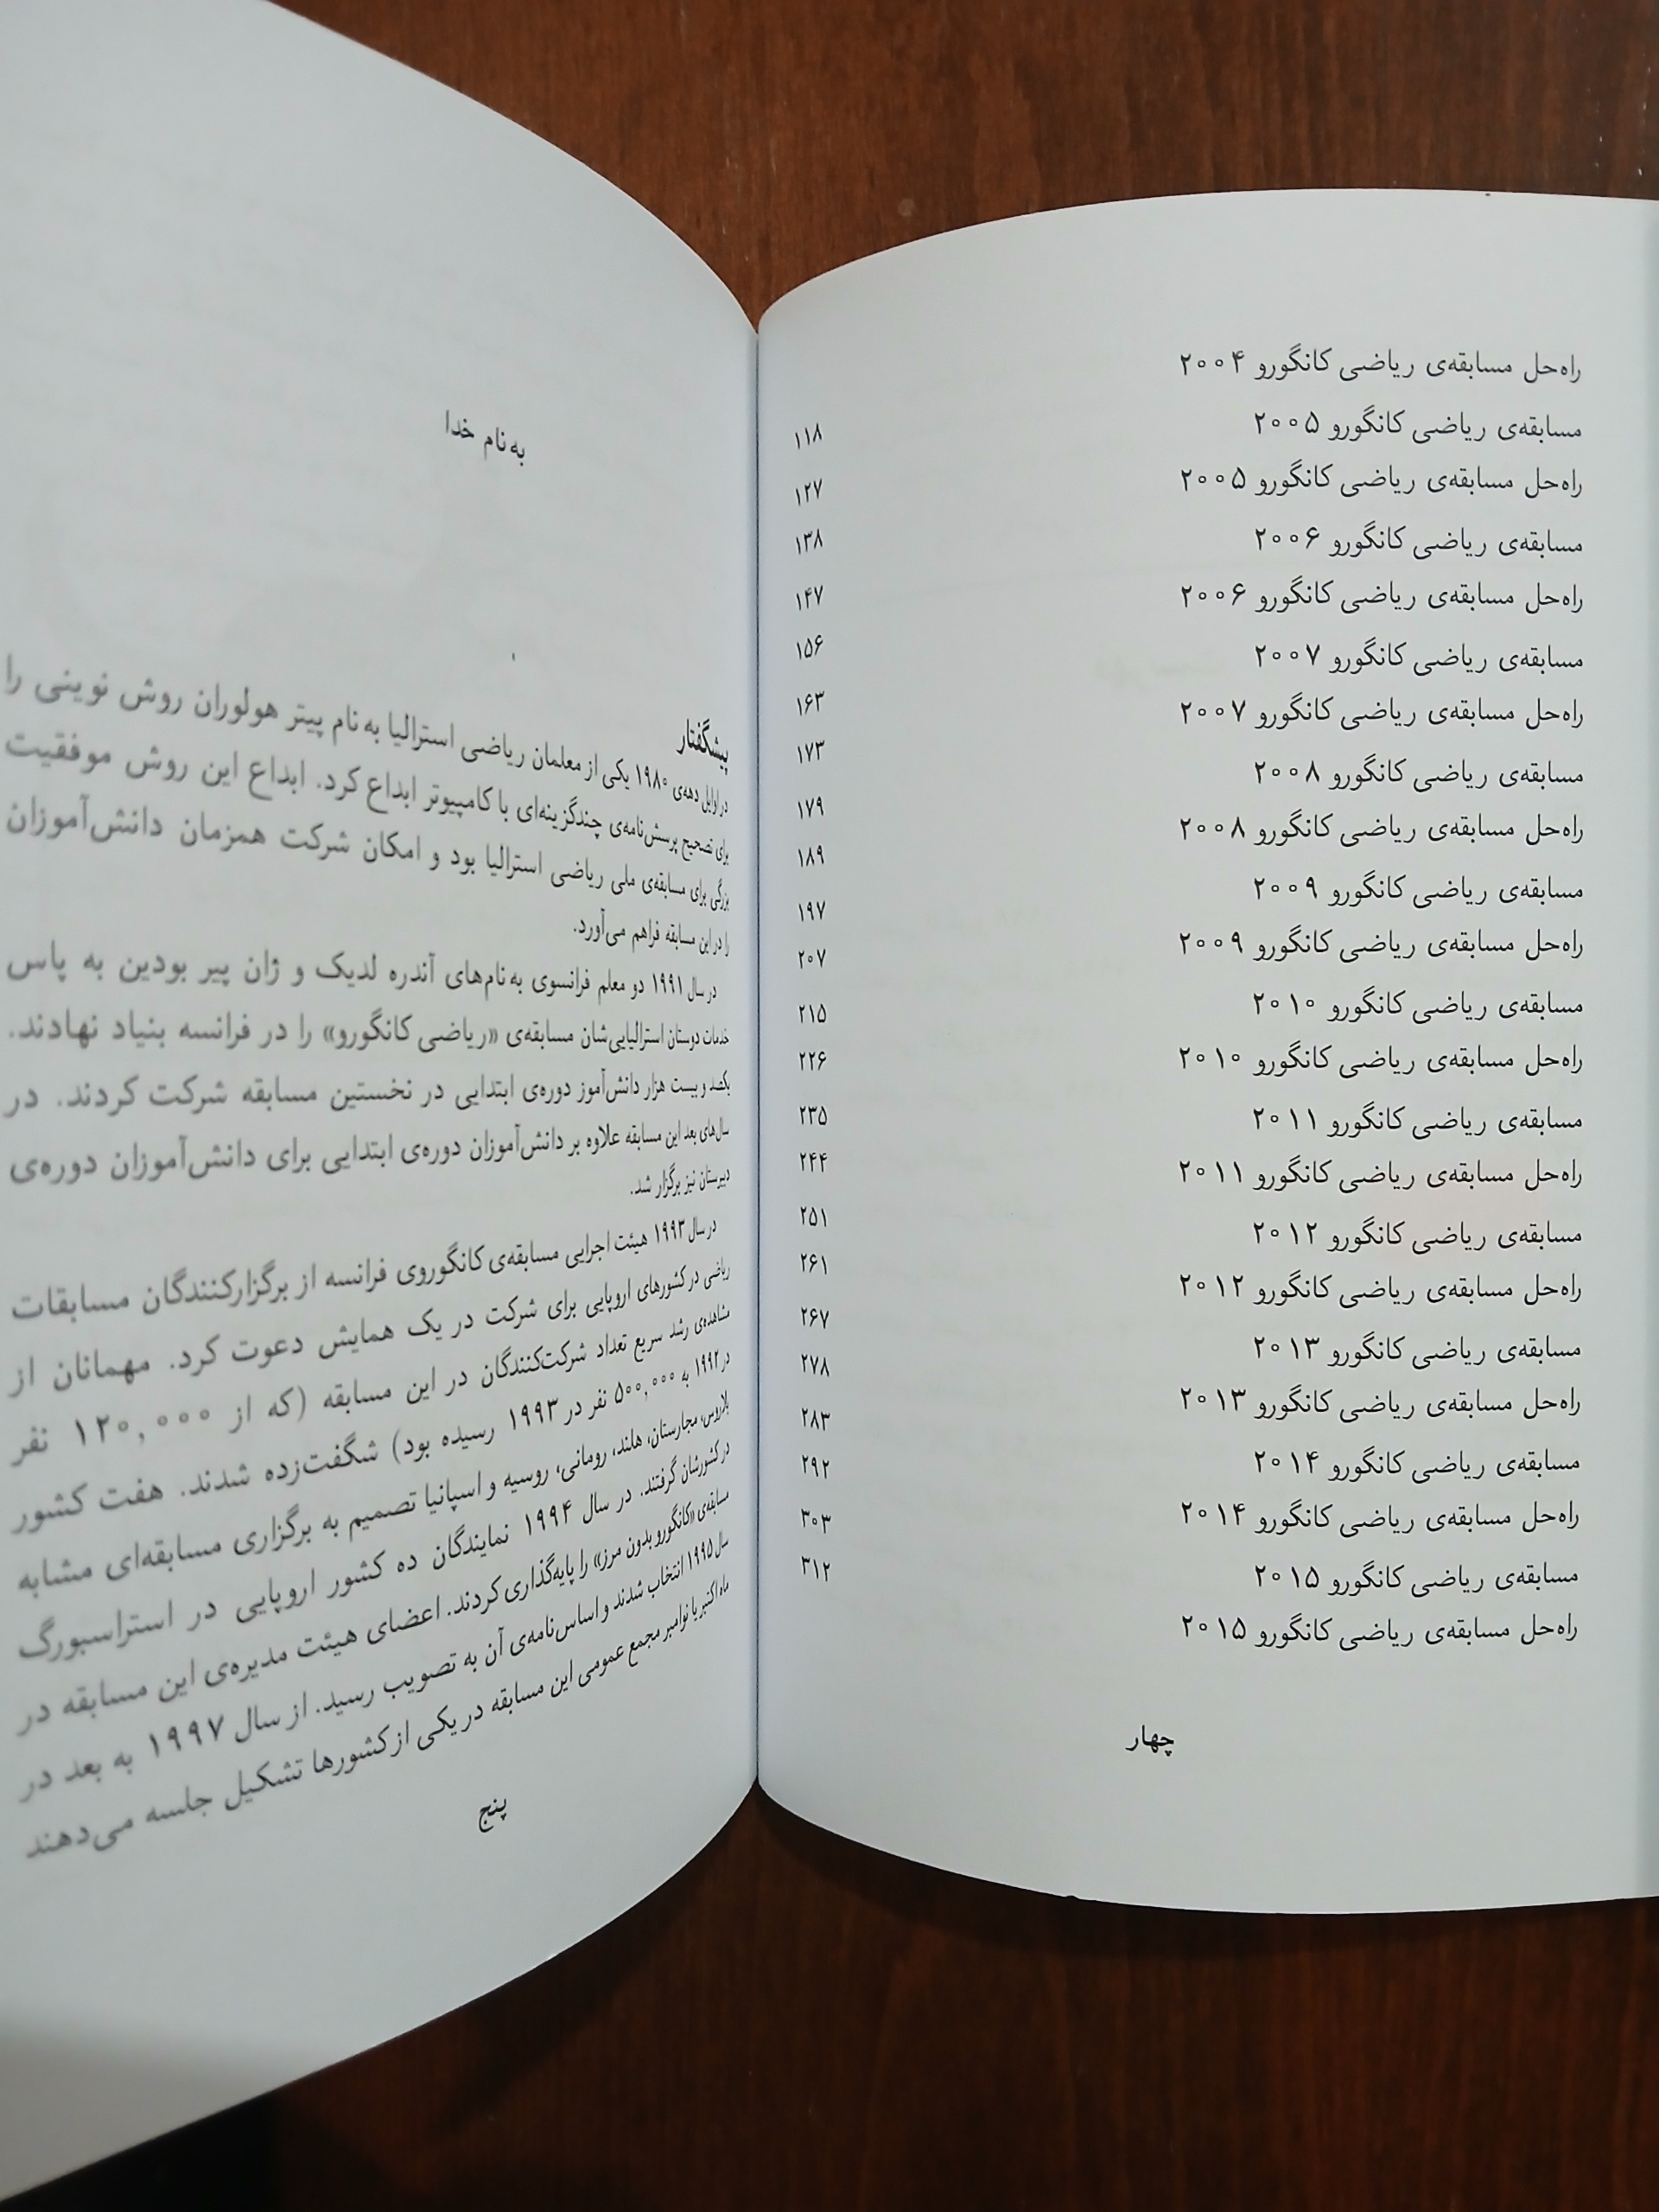 راه‌حل مسابقه‌ی ریاضی کانگورو ۲۰۰۴ ۱۱۸
مسابقه‌ی ریاضی کانگورو ۲۰۰۵ ۱۲۷
راه‌حل مسابقه‌ی ریاضی کانگورو ۲۰۰۵ ۱۳۸
مسابقه‌ی ریاضی کانگورو ۲۰۰۶ ۱۴۷
راه‌حل مسابقه‌ی ریاضی کانگورو ۲۰۰۶ ۱۵۶
مسابقه‌ی ریاضی کانگورو ۲۰۰۷ ۱۶۳
راه‌حل مسابقه‌ی ریاضی کانگورو ۲۰۰۷ ۱۷۳
مسابقه‌ی ریاضی کانگورو ۲۰۰۸ ۱۷۹
راه‌حل مسابقه‌ی ریاضی کانگورو ۲۰۰۸ ۱۸۹
مسابقه‌ی ریاضی کانگورو ۲۰۰۹ ۱۹۷
راه‌حل مسابقه‌ی ریاضی کانگورو ۲۰۰۹ ۲۰۷
مسابقه‌ی ریاضی کانگورو ۲۰۱۰ ۲۱۵
راه‌حل مسابقه‌ی ریاضی کانگورو ۲۰۱۰ ۲۲۶
مسابقه‌ی ریاضی کانگورو ۲۰۱۱ ۲۳۵
راه‌حل مسابقه‌ی ریاضی کانگورو ۲۰۱۱ ۲۴۴
مسابقه‌ی ریاضی کانگورو ۲۰۱۲ ۲۵۱
راه‌حل مسابقه‌ی ریاضی کانگورو ۲۰۱۲ ۲۶۱
مسابقه‌ی ریاضی کانگورو ۲۰۱۳ ۲۶۷
راه‌حل مسابقه‌ی ریاضی کانگورو ۲۰۱۳ ۲۷۸
مسابقه‌ی ریاضی کانگورو ۲۰۱۴ ۲۸۳
راه‌حل مسابقه‌ی ریاضی کانگورو ۲۰۱۴ ۲۹۲
مسابقه‌ی ریاضی کانگورو ۲۰۱۵ ۳۰۳
راه‌حل مسابقه‌ی ریاضی کانگورو ۲۰۱۵ ۳۱۲
چهار
به نام خدا
پیشگفتار
در اوایل دهه‌ی ۱۹۸۰ یکی از معلمان ریاضی استرالیا به نام پیتر هولوران روش نوینی را
برای تصحیح پرسش‌نامه‌ی چندگزینه‌ای با کامپیوتر ابداع کرد. ابداع این روش موفقیت
بزرگی برای مسابقه‌ی ملی ریاضی استرالیا بود و امکان شرکت همزمان دانش‌آموزان
را در این مسابقه فراهم می‌آورد.
در سال ۱۹۹۱ دو معلم فرانسوی به نام‌های آندره لدیک و ژان پیر بودین به پاس
خدمات دوستان استرالیایی‌شان مسابقه‌ی «ریاضی کانگورو» را در فرانسه بنیاد نهادند.
یکصد و بیست هزار دانش‌آموز دوره‌ی ابتدایی در نخستین مسابقه شرکت کردند. در
سال‌های بعد این مسابقه علاوه بر دانش‌آموزان دوره‌ی ابتدایی برای دانش‌آموزان دوره‌ی
دبیرستان نیز برگزار شد.
در سال ۱۹۹۳ هیئت اجرایی مسابقه‌ی کانگوروی فرانسه از برگزارکنندگان مسابقات
ریاضی در کشورهای اروپایی برای شرکت در یک همایش دعوت کرد. مهمانان از
مشاهده‌ی رشد سریع تعداد شرکت‌کنندگان در این مسابقه (که از ۱۲۰,۰۰۰ نفر
در ۱۹۹۲ به ۵۰۰,۰۰۰ نفر در ۱۹۹۳ رسیده بود) شگفت‌زده شدند. هفت کشور
بلاروس، مجارستان، هلند، رومانی، روسیه و اسپانیا تصمیم به برگزاری مسابقه‌ای مشابه
در کشورشان گرفتند. در سال ۱۹۹۴ نمایندگان ده کشور اروپایی در استراسبورگ
مسابقه‌ی «کانگورو بدون مرز» را پایه‌گذاری کردند. اعضای هیئت مدیره‌ی این مسابقه در
سال ۱۹۹۵ انتخاب شدند و اساس‌نامه‌ی آن به تصویب رسید. از سال ۱۹۹۷ به بعد در
ماه اکتبر یا نوامبر مجمع عمومی این مسابقه در یکی از کشورها تشکیل جلسه می‌دهند
پنج